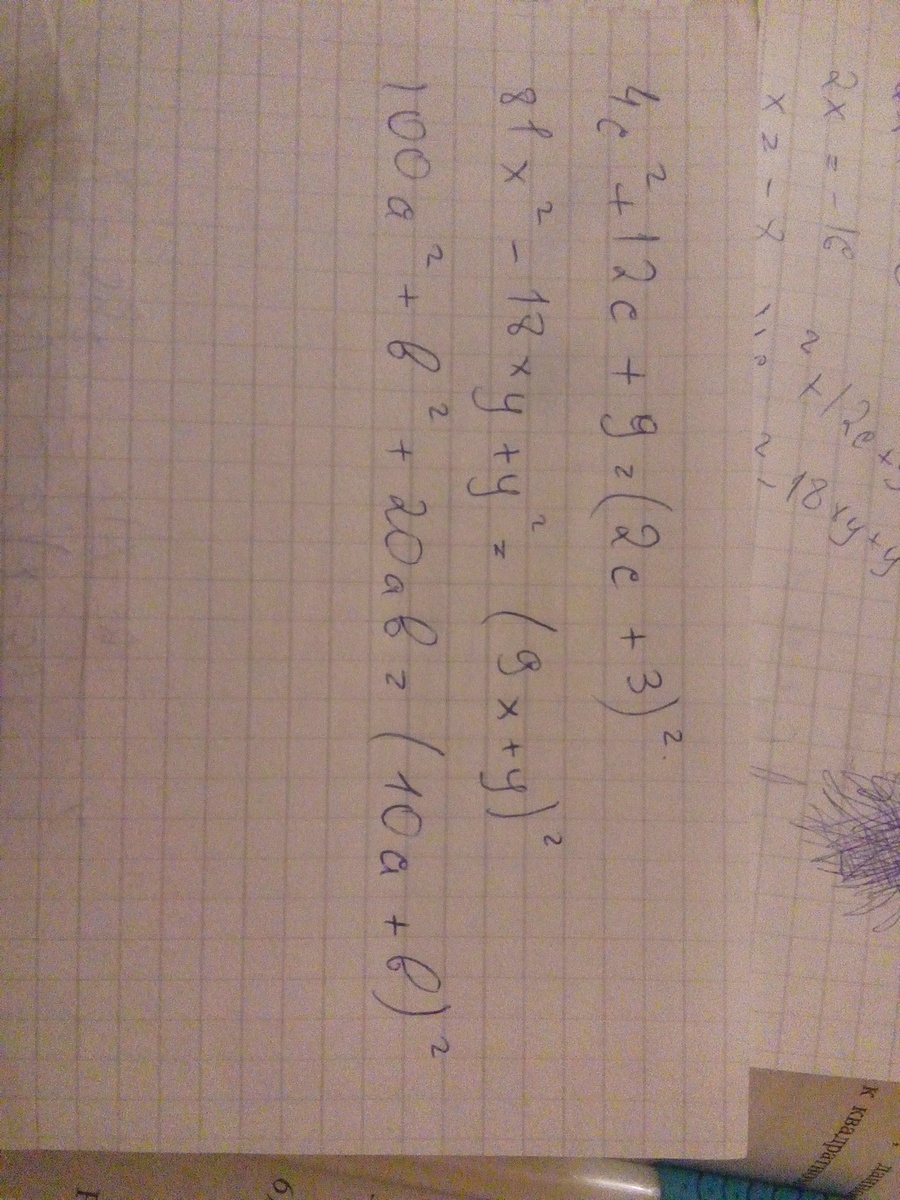 2x = -16
x = -8
x12c
18xy+y
4c² + 12c + 9 = (2c + 3)²
81x² - 18xy + y² = (9x + y)²
100a² + b² + 20ab = (10a + b)²
к квадратн
6